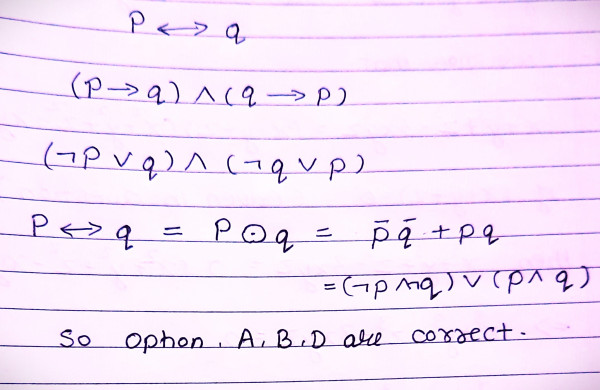 P ↔ q
(p → q) ∧ (q → p)
(¬p ∨ q) ∧ (¬q ∨ p)
P ↔ q = P ⊙ q = p̄ q̄ + pq
= (¬p ∧ ¬q) ∨ (p ∧ q)
So option. A, B, D are correct.